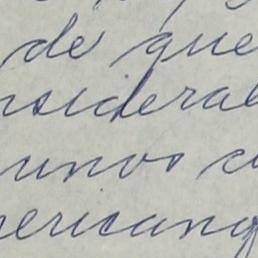 de que
nsiderab
unos c
mericano